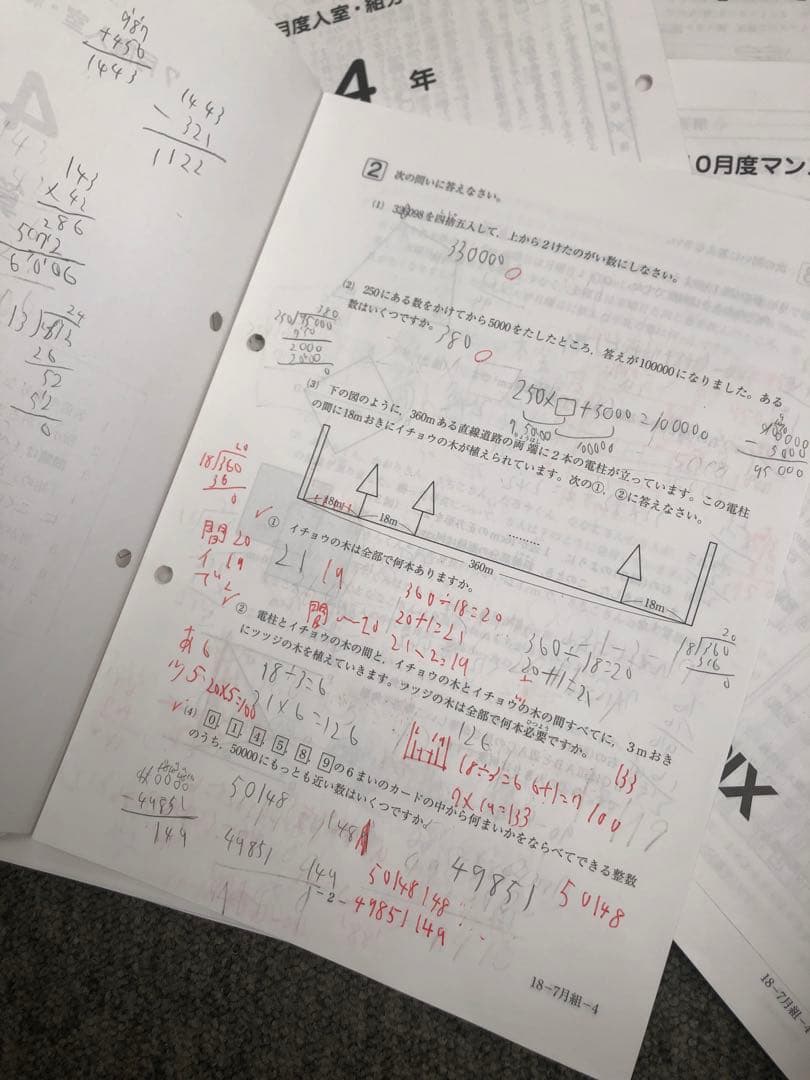 987
+456
1443
1443
- 321
1122
143
× 42
286
24
26
52
52
0
月度入室・組分
4 年
10月度マン
2 次の問いに答えなさい。
(1) を四捨五入して、上から2けたのがい数にしなさい。
330000
(2) 250にある数をかけてから5000をたしたところ、答えが100000になりました。ある
数はいくつですか。
380
380
250 95000
2000
2000
0
250×□+5000=100000
95000
100000
95000
(3) 下の図のように、360mある直線道路の両端に2本の電柱が立っています。この電柱
りょうはし
の間に18mおきにイチョウの木が植えられています。次の①、②に答えなさい。
20
18 360
36
0
18m
18m
360m
18m
① イチョウの木は全部で何本ありますか。
21
19
間 20
イ 19
で 2
360÷18=20
20+1=21
21-2=19
間 20
360÷18=20
20+1=21
20
18 360
36
0
② 電柱とイチョウの木の間と、イチョウの木とイチョウの木の間すべてに、3mおき
にツツジの木を植えていきます。ツツジの木は全部で何本必要ですか。
ひつよう
あ 6
ツ 5 20×5=100
18÷3=6
21×6=126
126
18÷3=6 6+1=7
7×19=133
133
100
(4) 0、1、4、5、8、9の6まいのカードの中から何まいかをならべてできる整数
のうち、50000にもっとも近い数はいくつですか。
- 49851
149
50148
148
49851
149
49851
50148
50148 148
49851 149
-2-
18-7月組-4
18-7月組-4